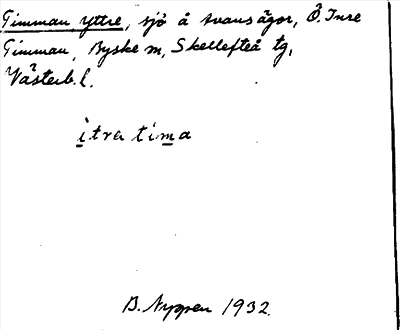 Gimman yttre, sjö å svansägor, Ö. Inre
Gimman, Byske m, Skellefteå tg,
Västerb. l.
itra tima
B. Nygren 1932